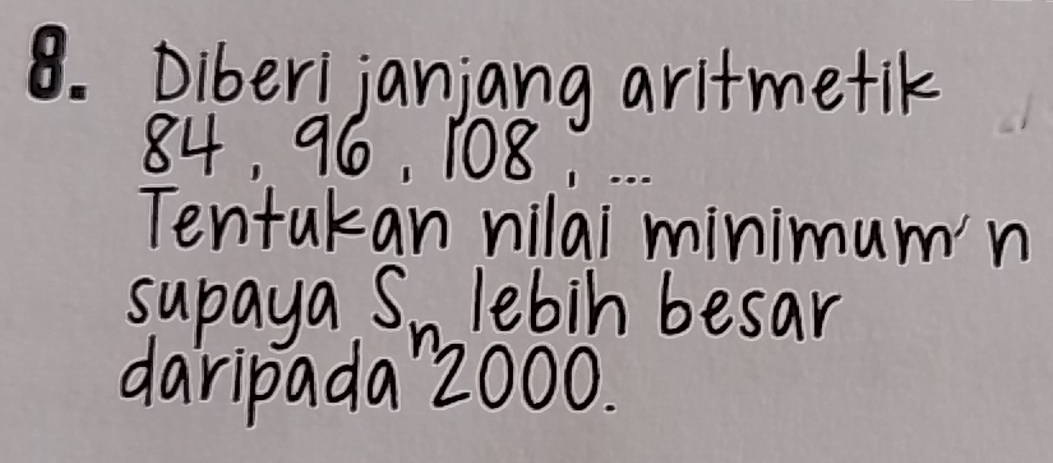 8. Diberi janjang aritmetik
84, 96, 108, ...
Tentukan nilai minimum n
supaya Sₙ lebih besar
daripada 2000.